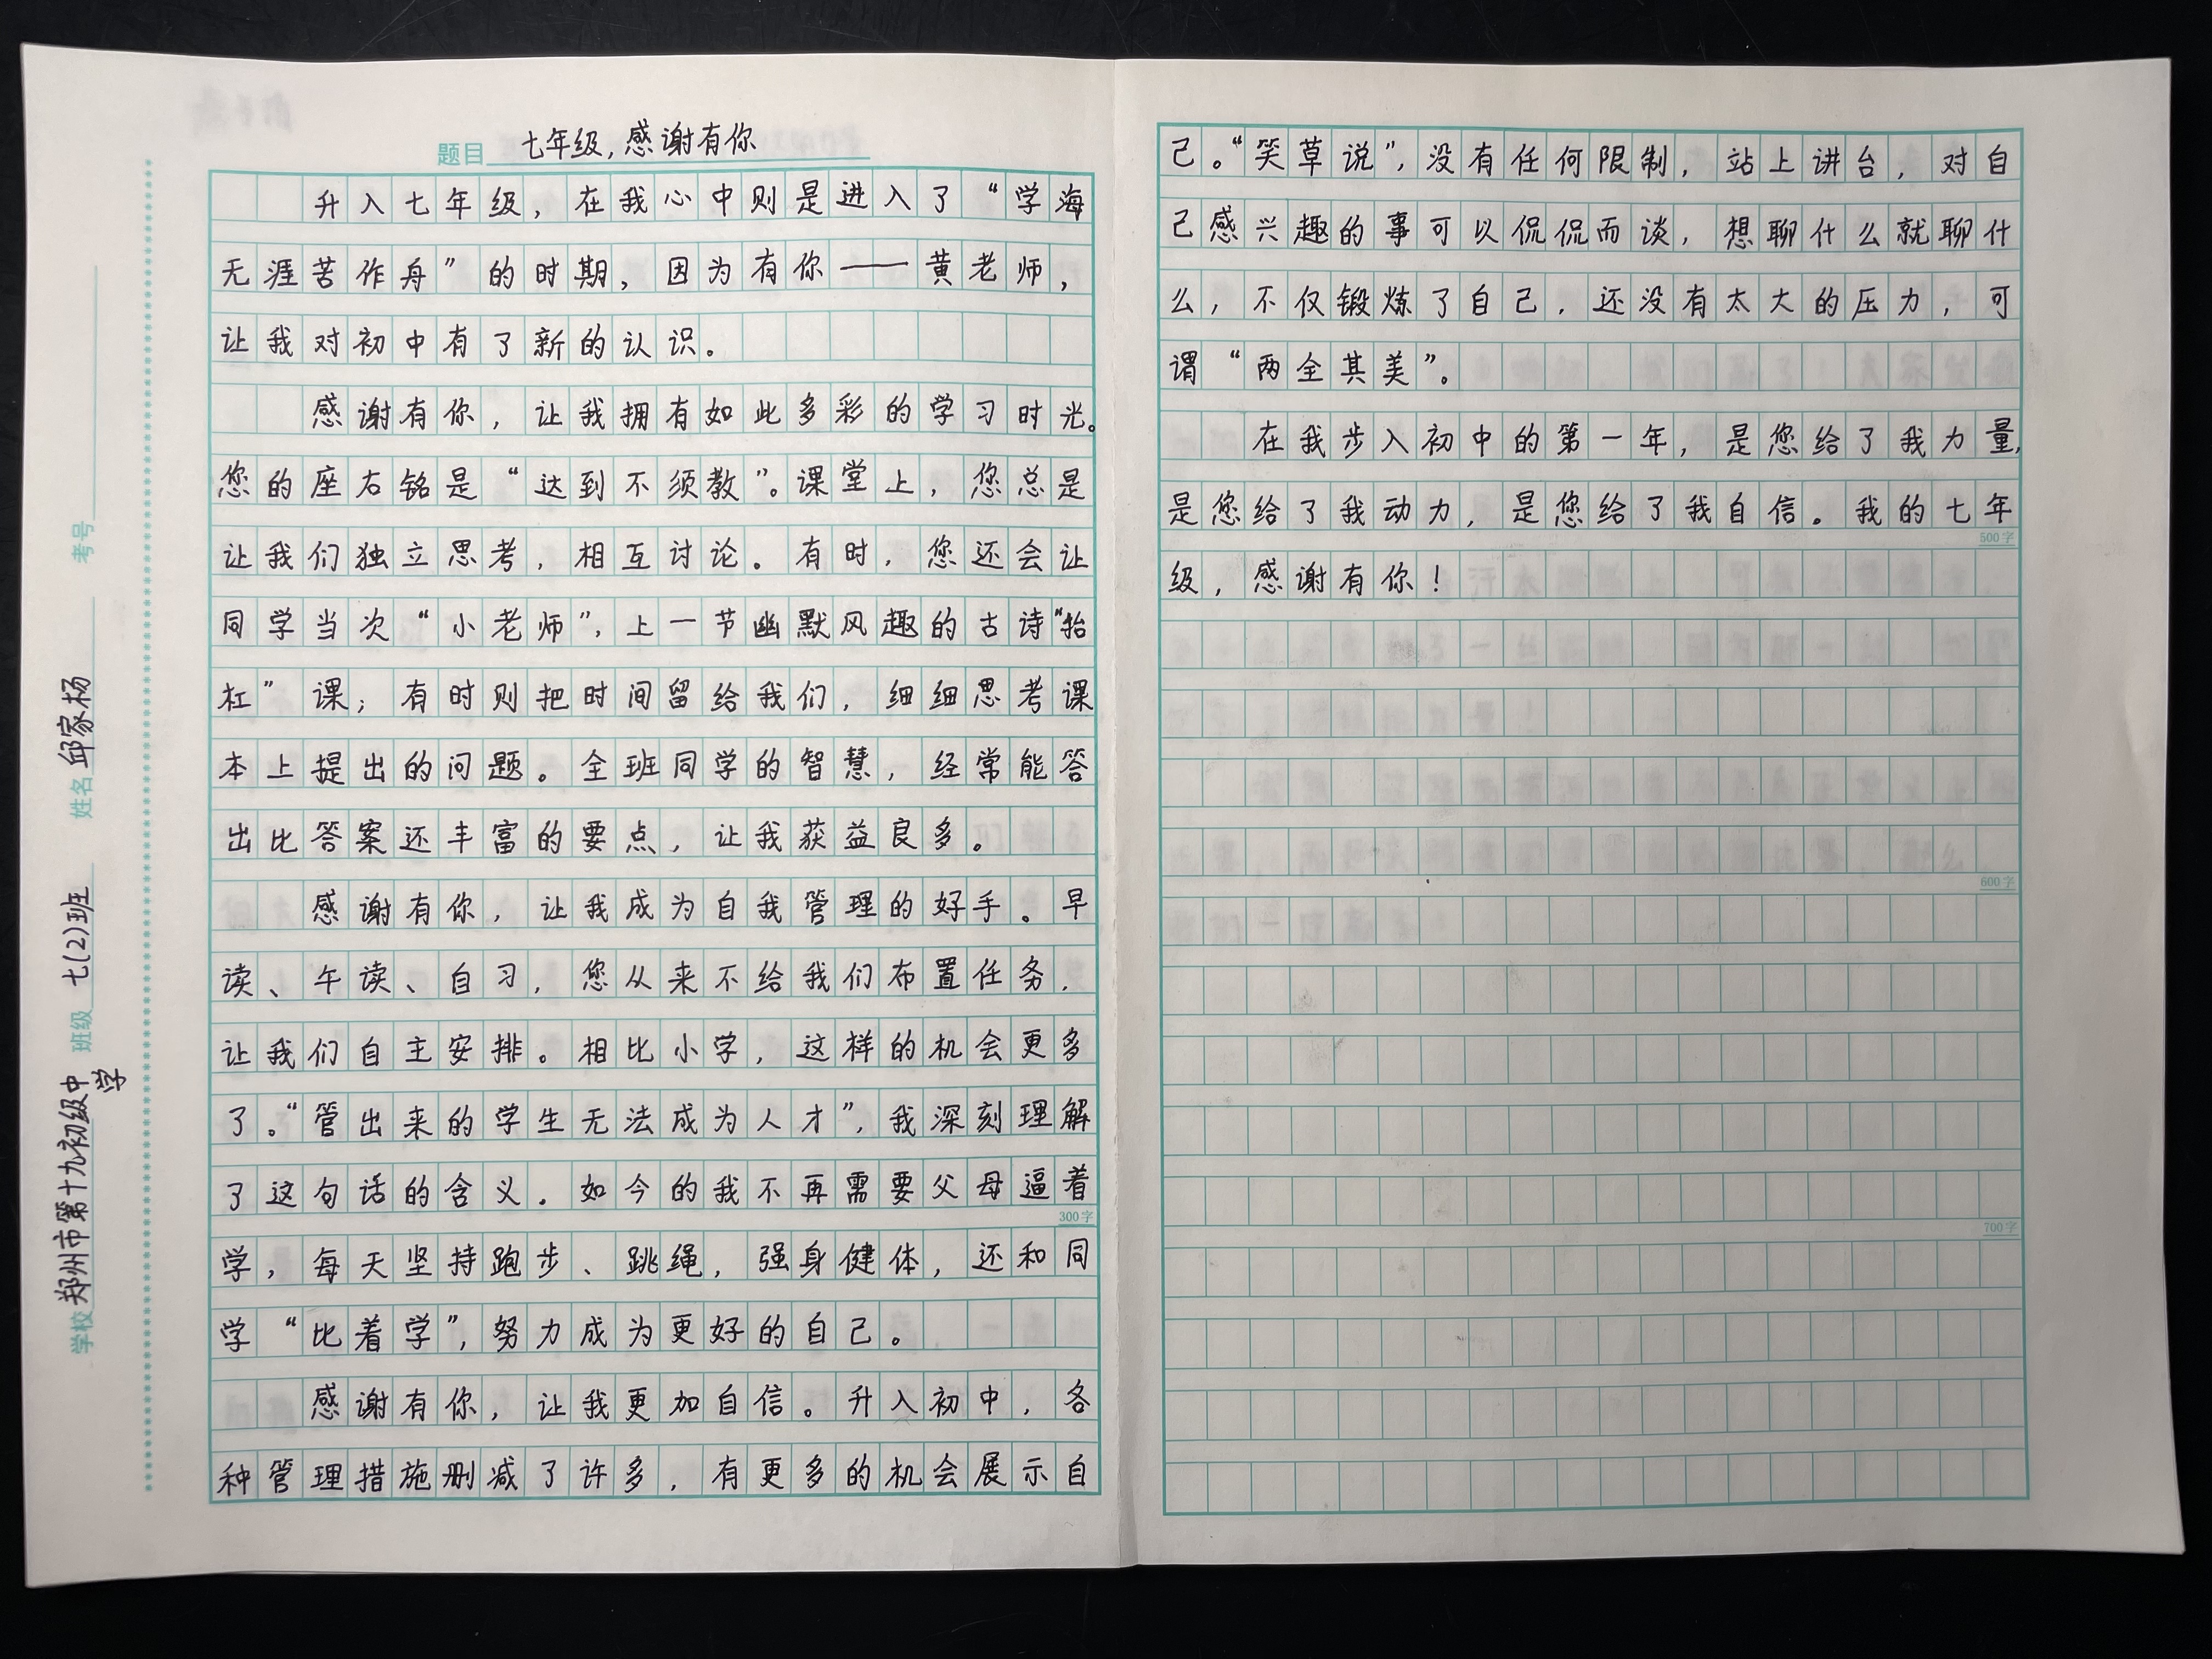 题目 七年级,感谢有你
升入七年级，在我心中则是进入了“学海
无涯苦作舟”的时期，因为有你——黄老师，
让我对初中有了新的认识。
感谢有你，让我拥有如此多彩的学习时光。
您的座右铭是“达到不须教”。课堂上，您总是
让我们独立思考，相互讨论。有时，您还会让
同学当次“小老师”，上一节幽默风趣的古诗“抬
杠”课；有时则把时间留给我们，细细思考课
本上提出的问题。全班同学的智慧，经常能答
出比答案还丰富的要点，让我获益良多。
感谢有你，让我成为自我管理的好手。早
读、午读、自习，您从来不给我们布置任务，
让我们自主安排。相比小学，这样的机会更多
了。“管出来的学生无法成为人才”，我深刻理解
了这句话的含义。如今的我不再需要父母逼着
300字
学，每天坚持跑步、跳绳，强身健体，还和同
学“比着学”，努力成为更好的自己。
感谢有你，让我更加自信。升入初中，各
种管理措施删减了许多，有更多的机会展示自
己。“笑草说”，没有任何限制，站上讲台，对自
己感兴趣的事可以侃侃而谈，想聊什么就聊什
么，不仅锻炼了自己，还没有太大的压力，可
谓“两全其美”。
在我步入初中的第一年，是您给了我力量，
是您给了我动力，是您给了我自信。我的七年
500字
级，感谢有你！
600字
700字
学校 郑州市第十九初级中学 班级 七(2)班 姓名 邱家杨 考号